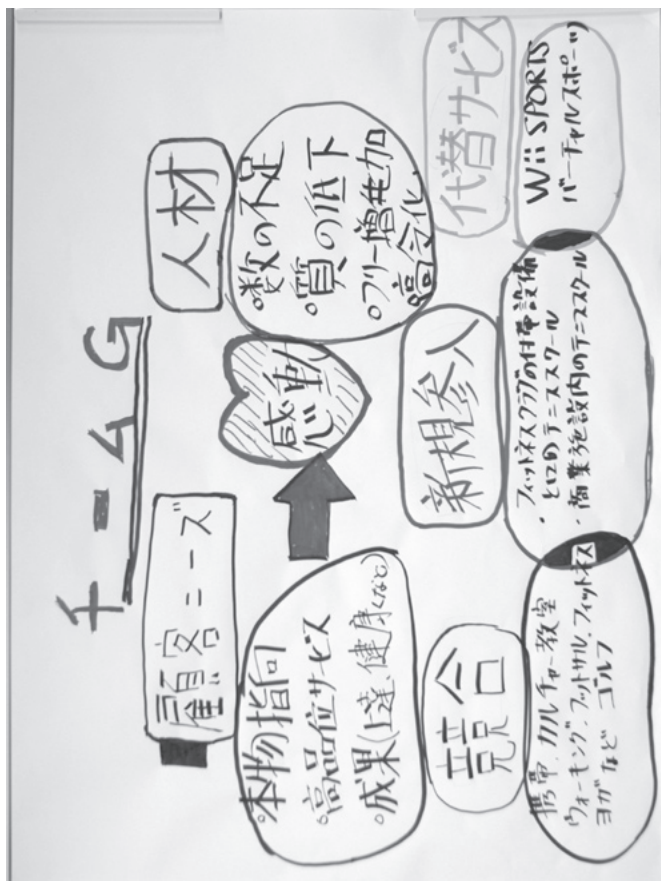 チームG
顧客ニーズ
。本物指向
。高品位サービス
。成果(上達、健康など)
感動
人材
。数の不足
。質の低下
。フリー増加
高令化
競合
携帯、カルチャー教室
ウォーキング、フットサル、フィットネス
ヨガなど ゴルフ
新規参入
・フィットネスクラブの付帯設備
としてのテニススクール
・商業施設内のテニススクール
代替サービス
Wii SPORTS
バーチャルスポーツ